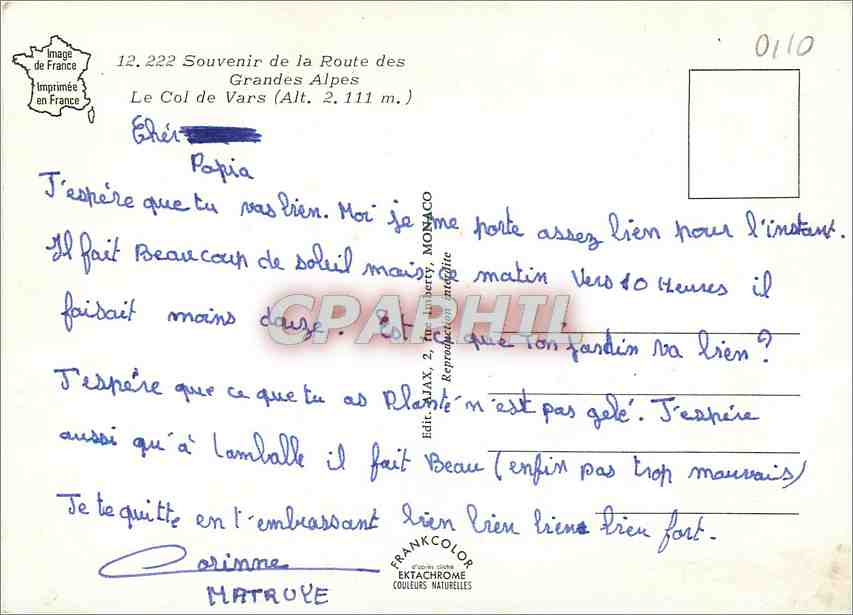 Image
de France
Imprimée
en France
12. 222 Souvenir de la Route des
Grandes Alpes
Le Col de Vars (Alt. 2. 111 m.)
0110
Chér
Papia
J'espére que tu vas bien. Moi je me porte assez bien pour l'instant.
Il fait Beaucoup de soleil mais ce matin vers 10 Heures il
faisait moins douze. Est ce que ton jardin va bien ?
J'espére que ce que tu as Planté n'est pas gelé. J'espére
aussi qu'à Lamballe il fait Beau (enfin pas trop mauvais)
Je te quitte en t'embrassant bien bien bien bien fort.
Corinne
MATROYE
Edit. AJAX, 2, rue Imberty, MONACO
Reproduction interdite
CPARHTL
FRANKCOLOR
d'après cliché
EKTACHROME
COULEURS NATURELLES